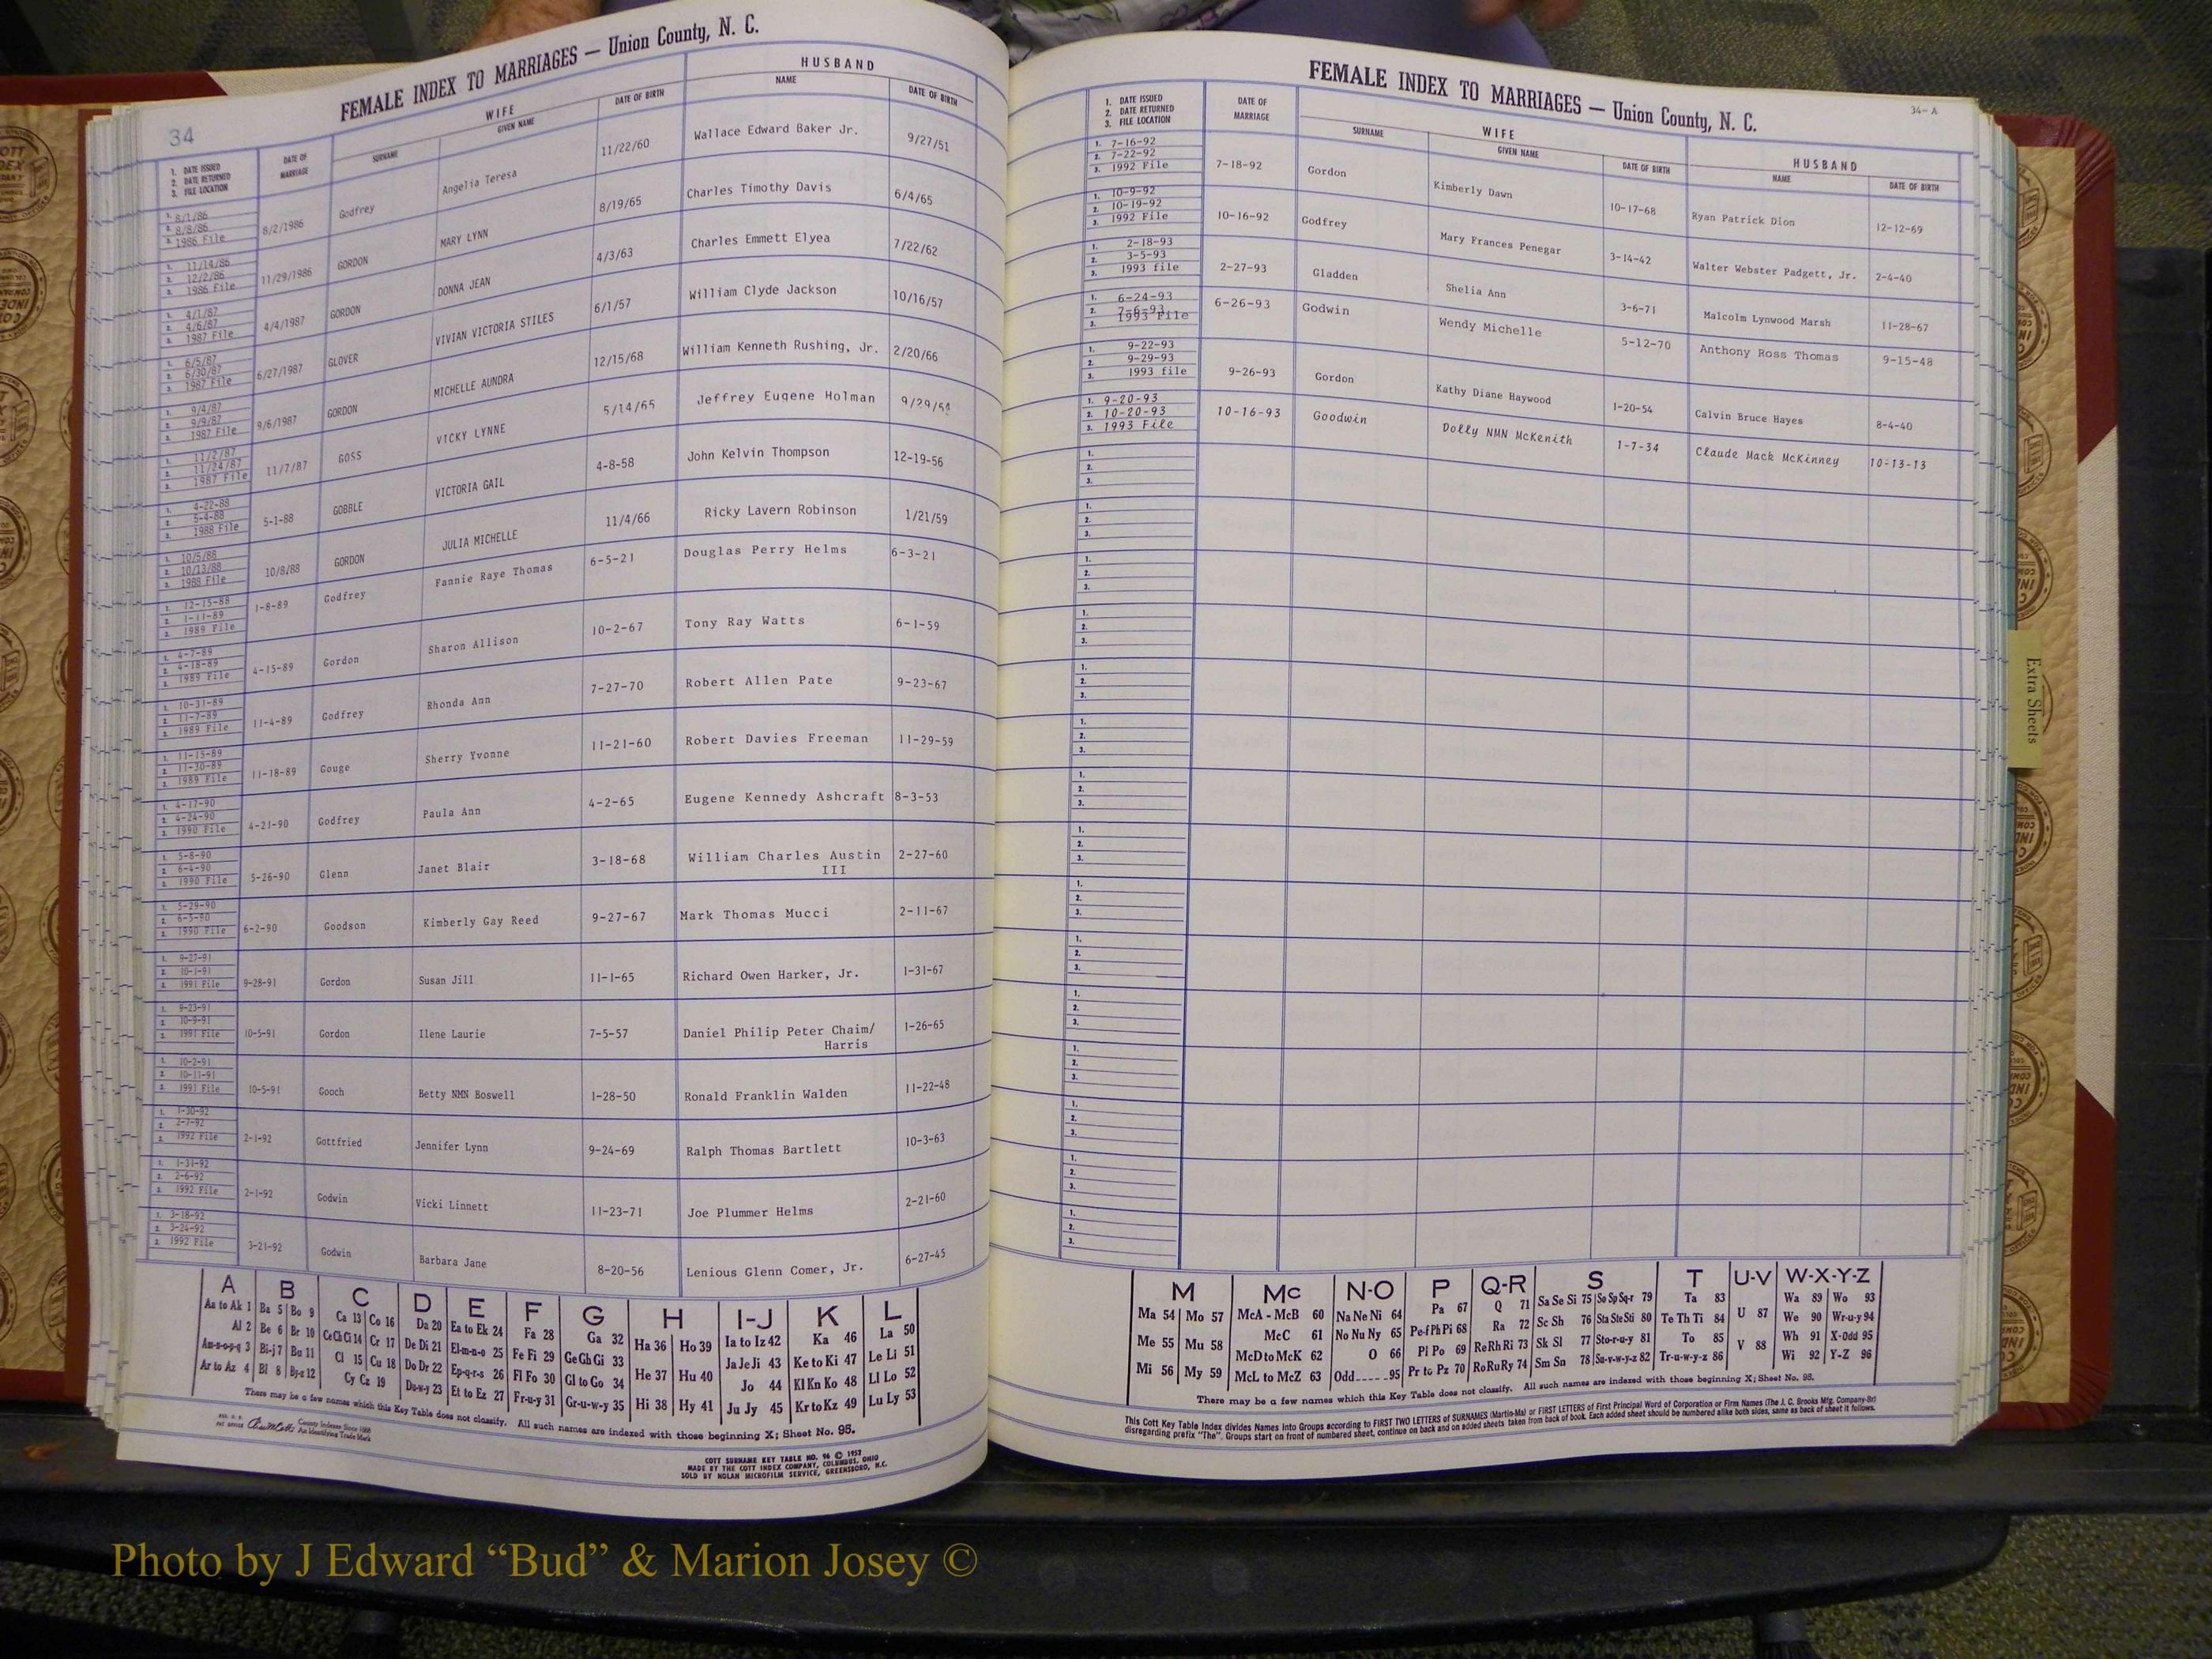 34
FEMALE INDEX TO MARRIAGES — Union County, N. C.
1. DATE ISSUED
2. DATE RETURNED
3. FILE LOCATION
DATE OF MARRIAGE
WIFE
SURNAME GIVEN NAME DATE OF BIRTH
HUSBAND
NAME DATE OF BIRTH
1. 8/1/86
2. 8/8/86
3. 1986 File
8/2/1986 Godfrey Angelia Teresa 11/22/60 Wallace Edward Baker Jr. 9/27/51
1. 11/14/86
2. 12/2/86
3. 1986 File
11/29/1986 GORDON MARY LYNN 8/19/65 Charles Timothy Davis 6/4/65
1. 4/1/87
2. 4/6/87
3. 1987 File
4/4/1987 GORDON DONNA JEAN 4/3/63 Charles Emmett Elyea 7/22/62
1. 6/5/87
2. 6/30/87
3. 1987 File
6/27/1987 GLOVER VIVIAN VICTORIA STILES 6/1/57 William Clyde Jackson 10/16/57
1. 9/4/87
2. 9/9/87
3. 1987 File
9/6/1987 GORDON MICHELLE AUNDRA 12/15/68 William Kenneth Rushing, Jr. 2/20/66
1. 11/2/87
2. 11/24/87
3. 1987 File
11/7/87 GOSS VICKY LYNNE 5/14/65 Jeffrey Eugene Holman
1. 4-22-88
2. 5-4-88
3. 1988 File
5-1-88 GOBBLE VICTORIA GAIL 4-8-58 John Kelvin Thompson 12-19-56
1. 10/5/88
2. 10/13/88
3. 1988 File
10/8/88 GORDON JULIA MICHELLE 11/4/66 Ricky Lavern Robinson 1/21/59
1. 12-15-88
2. 1-11-89
3. 1989 File
1-8-89 Godfrey Fannie Raye Thomas 6-5-21 Douglas Perry Helms 6-3-21
1. 4-7-89
2. 4-18-89
3. 1989 File
4-15-89 Gordon Sharon Allison 10-2-67 Tony Ray Watts 6-1-59
1. 10-31-89
2. 11-7-89
3. 1989 File
11-4-89 Godfrey Rhonda Ann 7-27-70 Robert Allen Pate 9-23-67
1. 11-15-89
2. 11-30-89
3. 1989 File
11-18-89 Gouge Sherry Yvonne 11-21-60 Robert Davies Freeman 11-29-59
1. 4-17-90
2. 4-24-90
3. 1990 File
4-21-90 Godfrey Paula Ann 4-2-65 Eugene Kennedy Ashcraft 8-3-53
1. 5-8-90
2. 6-4-90
3. 1990 File
5-26-90 Glenn Janet Blair 3-18-68 William Charles Austin 2-27-60
III
1. 5-29-90
2. 6-5-90
3. 1990 File
6-2-90 Goodson Kimberly Gay Reed 9-27-67 Mark Thomas Mucci 2-11-67
1. 9-27-91
2. 10-1-91
3. 1991 File
9-28-91 Gordon Susan Jill 11-1-65 Richard Owen Harker, Jr. 1-31-67
1. 9-23-91
2. 10-9-91
3. 1991 File
10-5-91 Gordon Ilene Laurie 7-5-57 Daniel Philip Peter Chaim/ 1-26-65
Harris
1. 10-2-91
2. 10-11-91
3. 1991 File
10-5-91 Gooch Betty NMN Boswell 1-28-50 Ronald Franklin Walden 11-22-48
1. 1-30-92
2. 2-7-92
3. 1992 File
2-1-92 Gottfried Jennifer Lynn 9-24-69 Ralph Thomas Bartlett 10-3-63
1. 1-31-92
2. 2-6-92
3. 1992 File
2-1-92 Godwin Vicki Linnett 11-23-71 Joe Plummer Helms 2-21-60
1. 3-18-92
2. 3-24-92
3. 1992 File
3-21-92 Godwin Barbara Jane 8-20-56 Lenious Glenn Comer, Jr. 6-27-45
A B C D E F G H I-J K L
Aa to Ak 1 Ba 5 Bo 9 Ca 13 Co 16 Da 20 Ea to Ek 24 Fa 28 Ga 32 Ha 36 Ho 39 Ia to Iz 42 Ka 46 La 50
Al 2 Be 6 Br 10 Ce Ch Ci 14 Cr 17 De Di 21 El-m-n-o 25 Fe Fi 29 Ge Gh Gi 33 He 37 Hu 40 Ja Je Ji 43 Ke to Ki 47 Le Li 51
Am-n-o-p-q 3 Bi-j 7 Bu 11 Cl 15 Cu 18 Do Dr 22 Ep-q-r-s 26 Fl Fo 30 Gl to Go 34 Hi 38 Hy 41 Jo 44 Kl Kn Ko 48 Ll Lo 52
Ar to Az 4 Bl 8 By-z 12 Cy Cz 19 Du-w-y 23 Et to Ez 27 Fr-u-y 31 Gr-u-w-y 35 Ju Jy 45 Kr to Kz 49 Lu Ly 53
There may be a few names which this Key Table does not classify. All such names are indexed with those beginning X; Sheet No. 95.
County Indexes Since 1888
An Identifying Trade Mark
COTT SURNAME KEY TABLE NO. 96 © 1957
MADE BY THE COTT INDEX COMPANY, COLUMBUS, OHIO
SOLD BY NOLAN MICROFILM SERVICE, GREENSBORO, N.C.
FEMALE INDEX TO MARRIAGES — Union County, N. C.
34-A
1. DATE ISSUED
2. DATE RETURNED
3. FILE LOCATION
DATE OF MARRIAGE
WIFE
SURNAME GIVEN NAME DATE OF BIRTH
HUSBAND
NAME DATE OF BIRTH
1. 7-16-92
2. 7-22-92
3. 1992 File
7-18-92 Gordon Kimberly Dawn 10-17-68 Ryan Patrick Dion 12-12-69
1. 10-9-92
2. 10-19-92
3. 1992 File
10-16-92 Godfrey Mary Frances Penegar 3-14-42 Walter Webster Padgett, Jr. 2-4-40
1. 2-18-93
2. 3-5-93
3. 1993 file
2-27-93 Gladden Shelia Ann 3-6-71 Malcolm Lynwood Marsh 11-28-67
1. 6-24-93
2. 7-6-93
3. 1993 File
6-26-93 Godwin Wendy Michelle 5-12-70 Anthony Ross Thomas 9-15-48
1. 9-22-93
2. 9-29-93
3. 1993 file
9-26-93 Gordon Kathy Diane Haywood 1-20-54 Calvin Bruce Hayes 8-4-40
1. 9-20-93
2. 10-20-93
3. 1993 File
10-16-93 Goodwin Dolly NMN McKenith 1-7-34 Claude Mack McKinney 10-13-13
Extra Sheets
M Mc N-O P Q-R S T U-V W-X-Y-Z
Ma 54 Mo 57 McA - McB 60 Na Ne Ni 64 Pa 67 Q 71 Sa Se Si 75 So Sp Sq-r 79 Ta 83 U 87 Wa 89 Wo 93
Me 55 Mu 58 McC 61 No Nu Ny 65 Pe-f Ph Pi 68 Ra 72 Sc Sh 76 Sta Ste Sti 80 Te Th Ti 84 V 88 We 90 Wr-u-y 94
Mi 56 My 59 McD to McK 62 O 66 Pl Po 69 Re Rh Ri 73 Sk Sl 77 Sto-r-u-y 81 To 85 Wh 91 X-Odd 95
McL to McZ 63 Odd 95 Pr to Pz 70 Ro Ru Ry 74 Sm Sn 78 Su-v-w-y-z 82 Tr-u-w-y-z 86 Wi 92 Y-Z 96
There may be a few names which this Key Table does not classify. All such names are indexed with those beginning X; Sheet No. 95.
This Cott Key Table Index divides Names into Groups according to FIRST TWO LETTERS of SURNAMES (Martin-Ma) or FIRST LETTERS of First Principal Word of Corporation or Firm Names (The J. C. Brooks Mfg. Company-Br)
disregarding prefix "The". Groups start on front of numbered sheet, continue on back and on added sheets taken from back of book. Each added sheet should be numbered alike both sides, same as back of sheet it follows.
Photo by J Edward “Bud” & Marion Josey ©